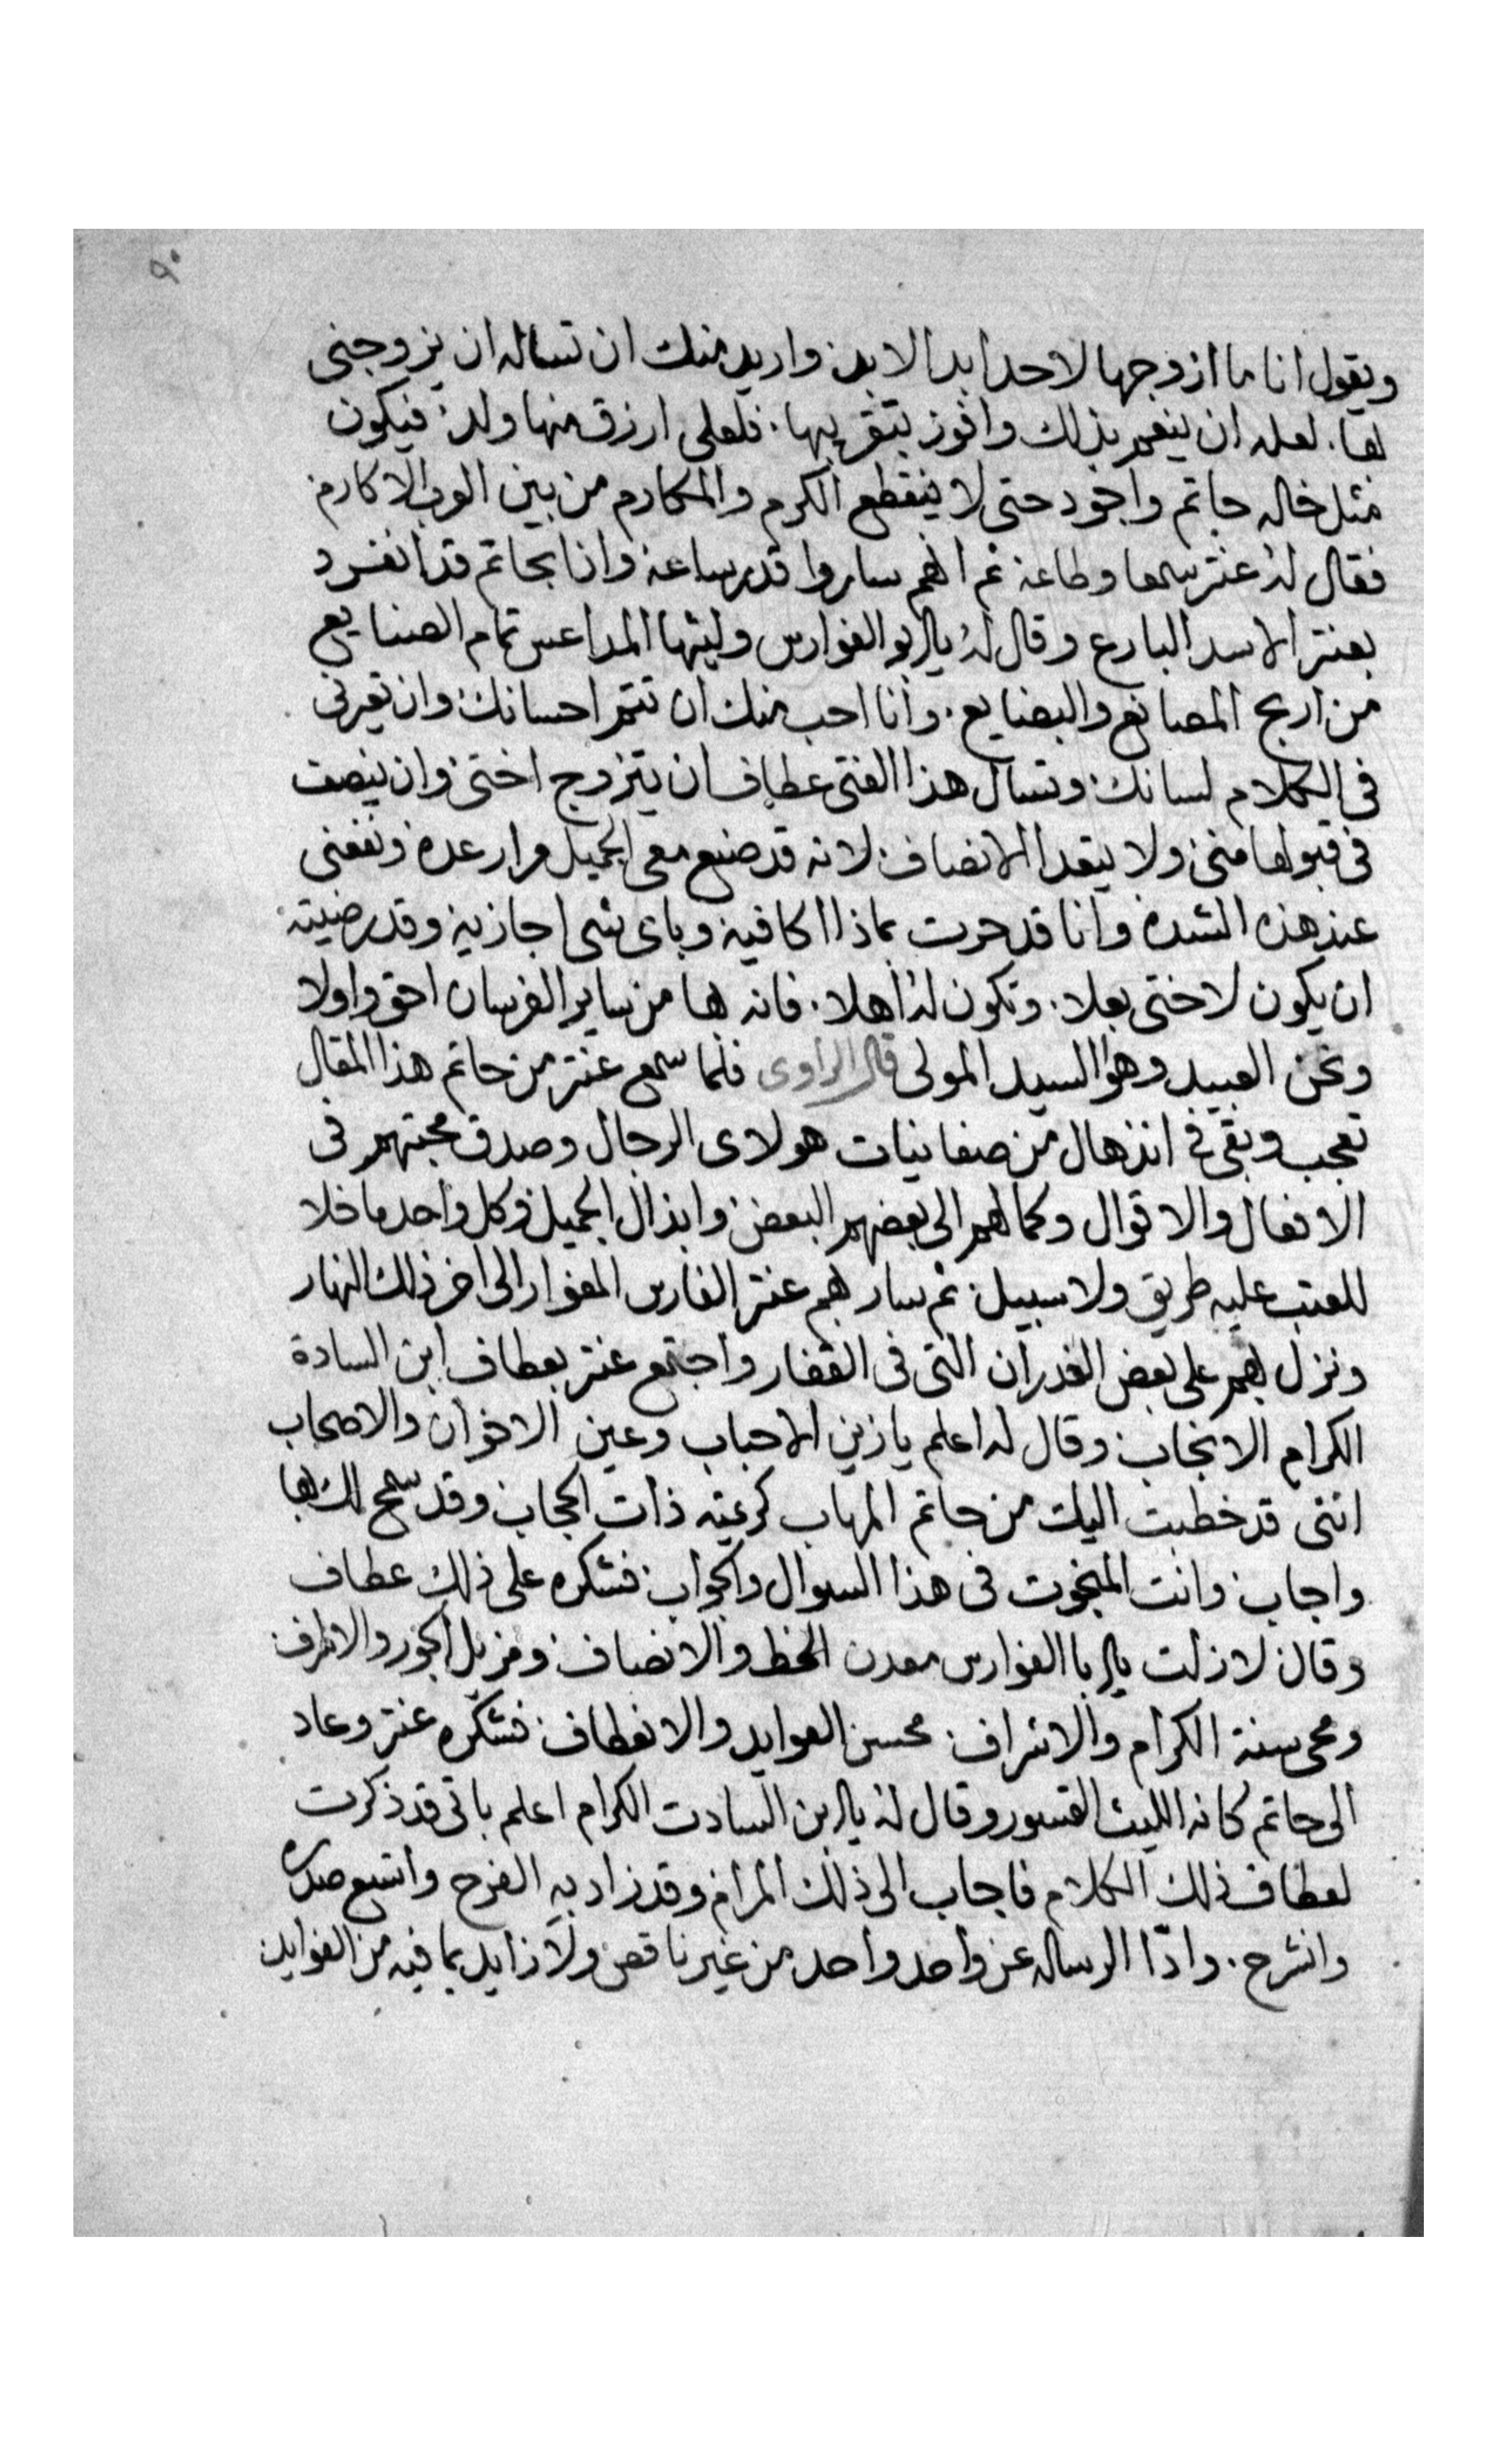 ٩٠
ويقول انا ما ازوجها لاحد ابد الابد. واريد منك ان تساله ان يزوجنى
لها. لعله ان ينعم بذلك وافوز بتقريبها. فلعلى ارزق منها ولد. فيكون
مثل خاله حاتم واجود حتى لا ينقطع الكرم والمكارم من بين العرب الاكارم.
فقال له عنتر سمعا وطاعة ثم انهم ساروا قدر ساعة واذا بحاتم قد انفرد
بعنتر الاسد البارع وقال له يا ابو الفوارس وليثها المداعس تمام الصنايع
من اربح المصانع والبضايع. وانا احب منك ان تتمم احسانك وان تعيرنى
فى الكلام لسانك. وتسال هذا الفتى عطاف ان يتزوج اختى. وان ينصف
فى قبولها منى. ولا يتعدا الانصاف. لانه قد صنع معى الجميل مرار عدة ونفعنى
عند هذه الشدة وانا قد حرت بماذا اكافيه وباى شى اجازيه وقد رضيته.
ان يكون لاختى بعلا. وتكون له اهلا. فانه بها من ساير الفرسان احق واولا
ونحن العبيد وهو السيد المولى قال الراوى فلما سمع عنتر من حاتم هذا المقال
تعجب وبقى فى انذهال من صفا نيات هولاى الرجال وصدق محبتهم فى
الافعال والاقوال وكمالهم الى بعضهم البعض. وابذال الجميل. وكل واحد ما خلا
للعتب عليه طريق ولا سبيل. ثم سار بهم عنتر الفارس المغوار الى اخر ذلك النهار
ونزل بهم على بعض الغدران التى فى القفار واجتمع عنتر بعطاف ابن السادة
الكرام الانجاب. وقال له اعلم يا زين الاحباب وعين الاخوان والاصحاب
اننى قد خطبت اليك من حاتم المهاب كرعيته ذات الحجاب. وقد سمح لك بها
واجاب. وانت المبخوت فى هذا السوال والجواب. فشكره على ذلك عطاف
وقال. لا زلت يا ابا الفوارس معدن الحظ والانصاف. ومزيل الجور والاطراف.
ومحى سنة الكرام والاشراف. محسن العوايد والانعطاف. فشكره عنتر وعاد
الى حاتم كانه الليث القسور وقال له يا ابن السادت الكرام اعلم بانى قد ذكرت
لعطاف ذلك الكلام فاجاب الى ذلك المرام. وقد زاد به الفرح واتسع صدره
وانشرح. وادّا الرساله عن واحد واحد من غير ناقص ولا زايد بما فيه من الفوايد.